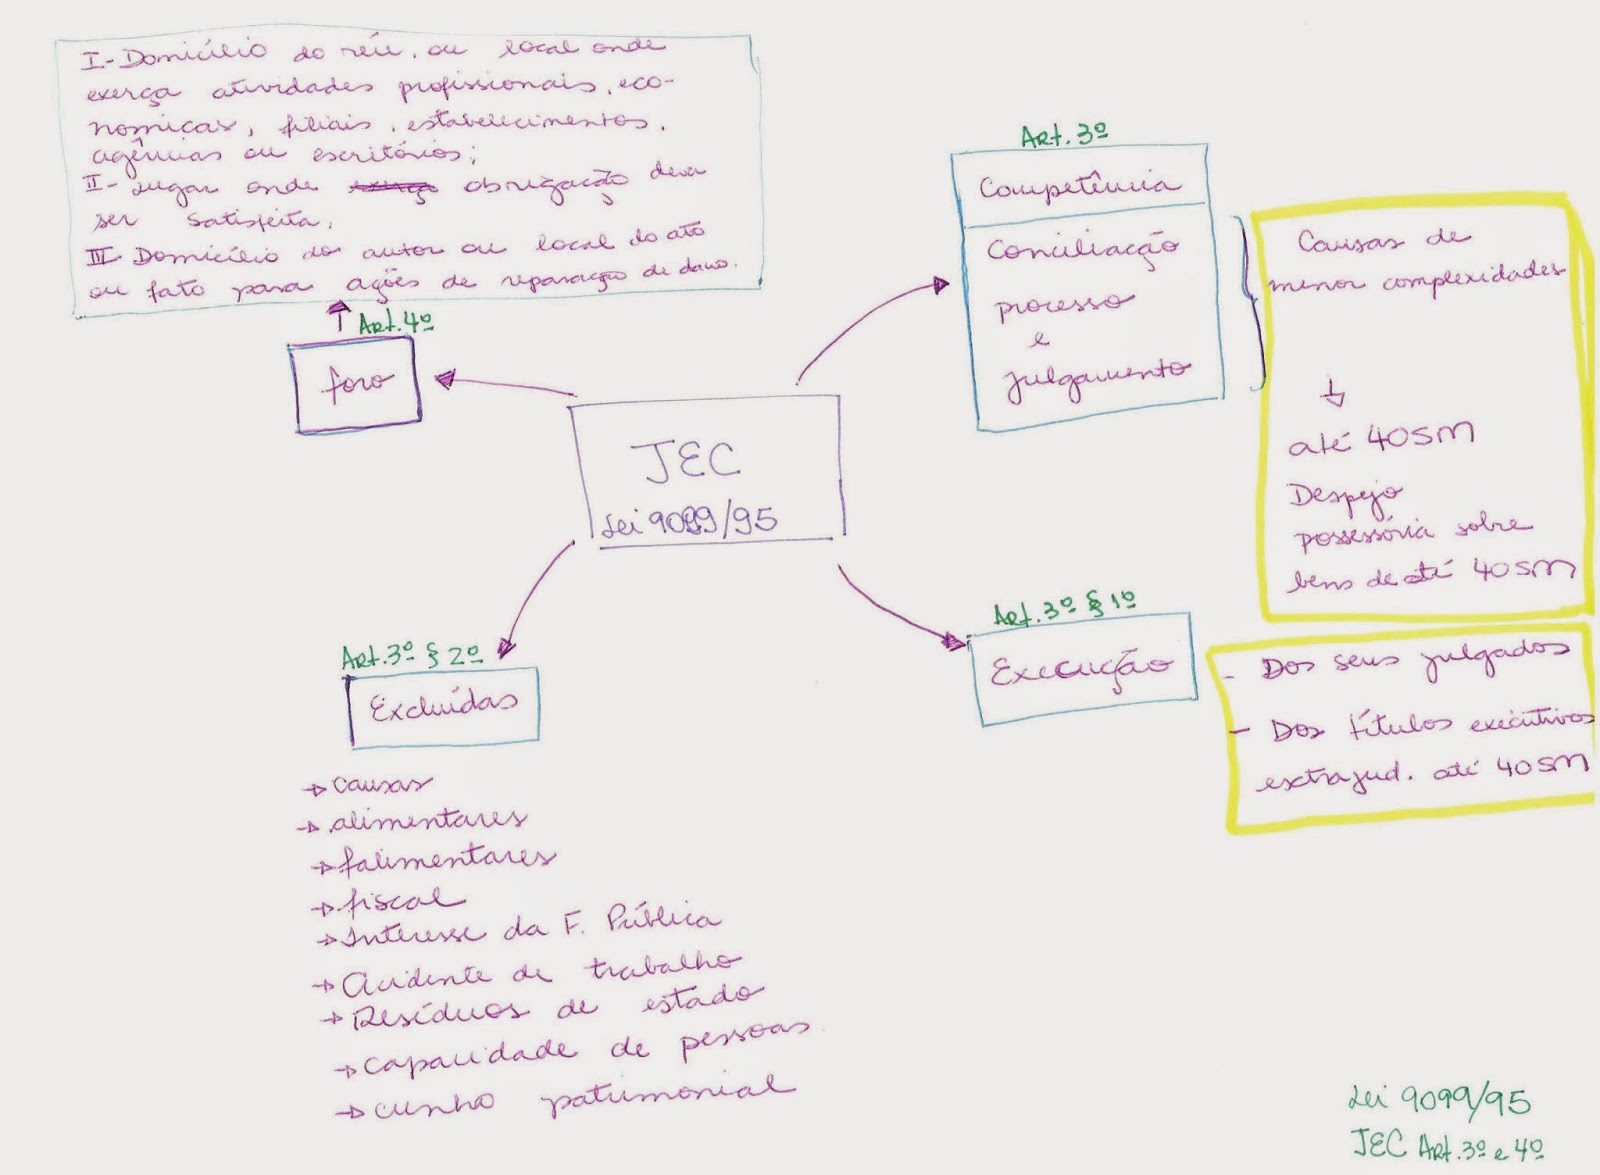 I- Domicílio do réu, ou local onde
exerça atividades profissionais, eco-
nomicas, filiais, estabelecimentos,
agências ou escritórios;
II- Lugar onde exerça obrigação deva
ser satisfeita,
III- Domicílio do autor ou local do ato
ou fato para ações de reparação de dano.
Art. 4º
foro
Art. 3º
Competência
Conciliação
processo
e
julgamento
Causas de
menor complexidades
até 40SM
Despejo
possessória sobre
bens de até 40SM
JEC
Lei 9099/95
Art. 3º § 1º
Execução
- Dos seus julgados
- Dos títulos executivos
extrajud. até 40SM
Art. 3º § 2º
Excluídas
→ causas
→ alimentares
→ falimentares
→ fiscal
→ Interesse da F. Pública
→ Acidente de trabalho
→ Resíduos de estado
→ capacidade de pessoas
→ cunho patrimonial
Lei 9099/95
JEC Art. 3º e 4º